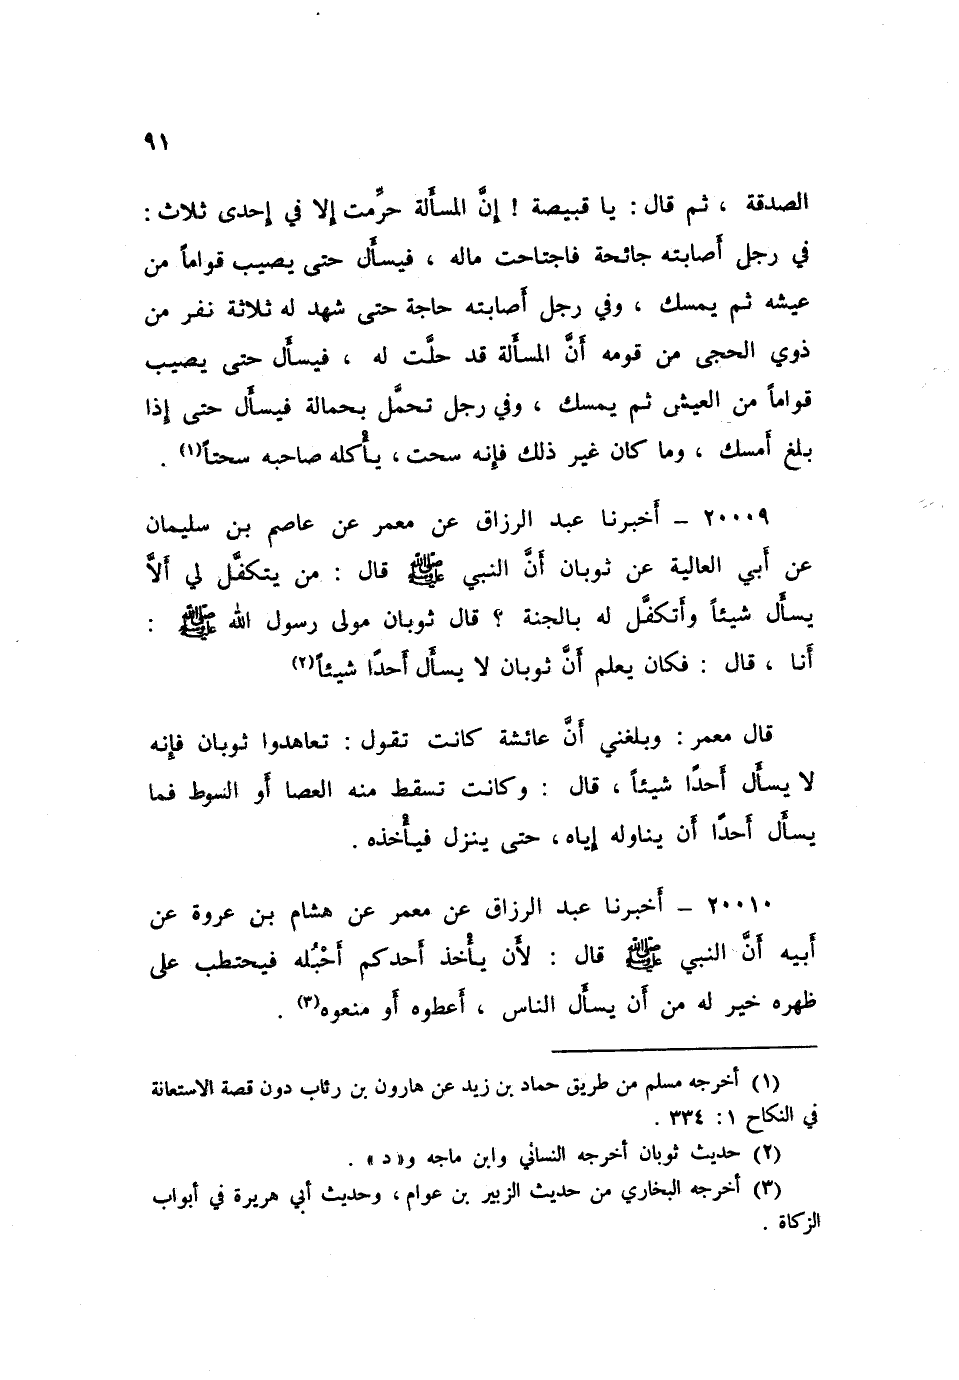 ٩١
الصدقة ، ثم قال : يا قبيصة ! إنَّ المسألة حرِّمت إلا في إحدى ثلاث :
في رجل أصابته جائحة فاجتاحت ماله ، فيسأَل حتى يصيب قواماً من
عيشه ثم يمسك ، وفي رجل أَصابته حاجة حتى شهد له ثلاثة نفر من
ذوي الحجى من قومه أَنَّ المسأَلة قد حلَّت له ، فيسأَل حتى يصيب
قواماً من العيش ثم يمسك ، وفي رجل تحمَّل بحمالة فيسأَل حتى إذا
بلغ أَمسك ، وما كان غير ذلك فإنه سحت ، يأْكله صاحبه سحتاً(١) .
٢٠٠٠٩ – أَخبرنا عبد الرزاق عن معمر عن عاصم بن سليمان
عن أَبي العالية عن ثوبان أَنَّ النبي ﷺ قال : من يتكفَّل لي أَلاَّ
يسأَل شيئاً وأَتكفَّل له بالجنة ؟ قال ثوبان مولى رسول الله ﷺ :
أَنا ، قال : فكان يعلم أَنَّ ثوبان لا يسأَل أَحدًا شيئاً(٢)
قال معمر : وبلغني أَنَّ عائشة كانت تقول : تعاهدوا ثوبان فإنه
لا يسأَل أَحدًا شيئاً ، قال : وكانت تسقط منه العصا أَو السوط فما
يسأَل أَحدًا أَن يناوله إياه ، حتى ينزل فيأْخذه .
٢٠٠١٠ – أَخبرنا عبد الرزاق عن معمر عن هشام بن عروة عن
أَبيه أَنَّ النبي ﷺ قال : لأَن يأْخذ أَحدكم أَحْبُله فيحتطب على
ظهره خير له من أَن يسأَل الناس ، أَعطوه أَو منعوه(٣) .
(١) أخرجه مسلم من طريق حماد بن زيد عن هارون بن رئاب دون قصة الاستعانة
في النكاح ١ : ٣٣٤ .
(٢) حديث ثوبان أخرجه النسائي وابن ماجه و«د» .
(٣) أخرجه البخاري من حديث الزبير بن عوام ، وحديث أبي هريرة في أبواب
الزكاة .